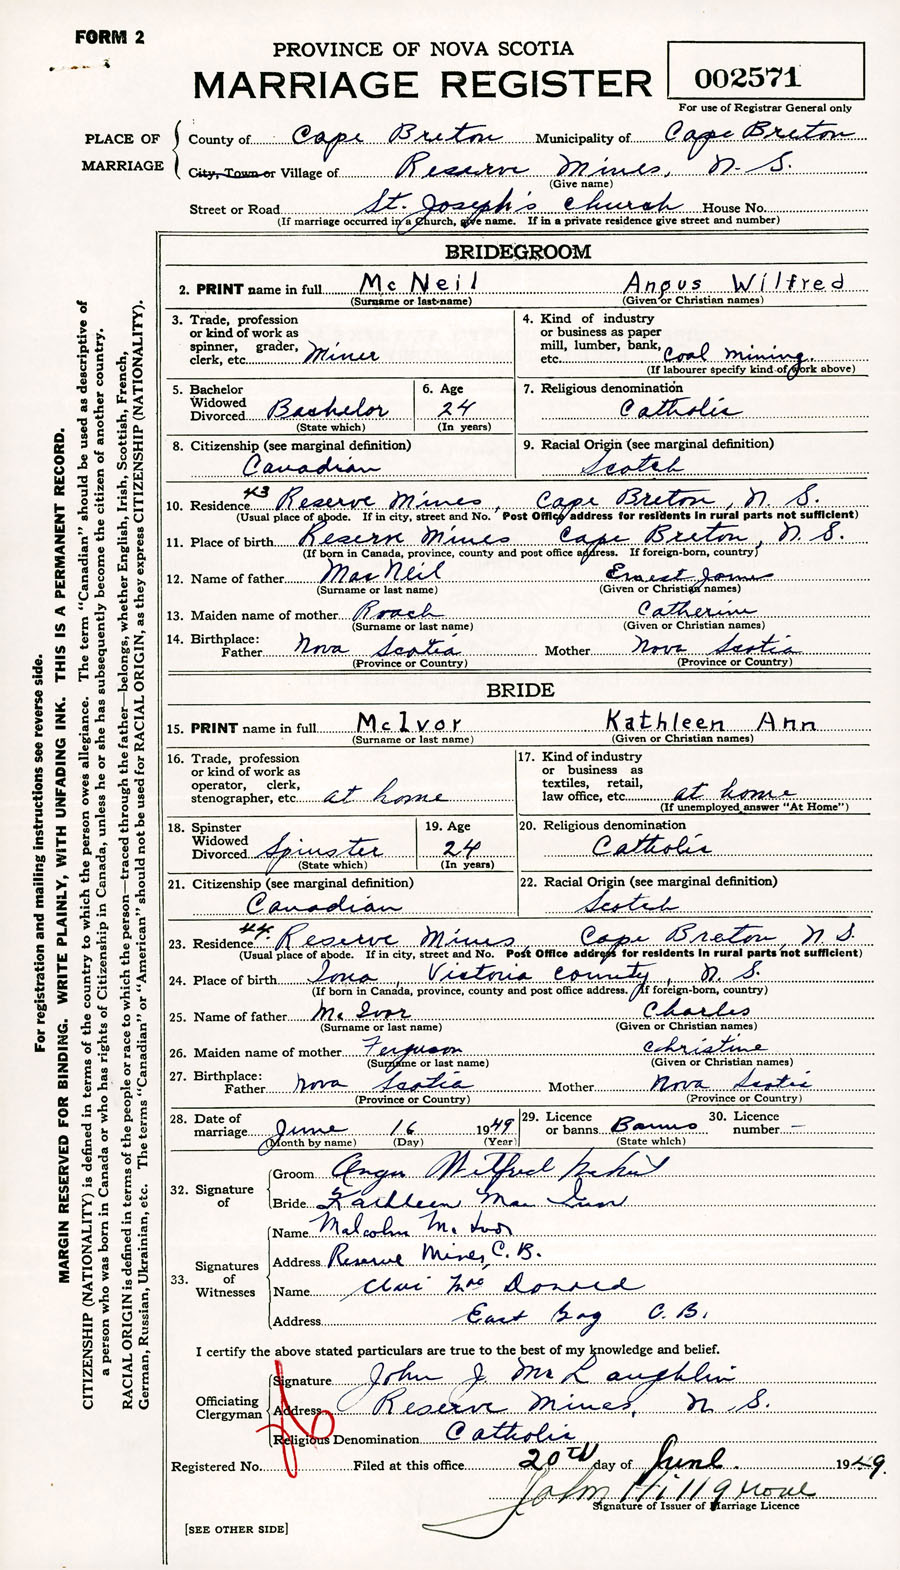 FORM 2
PROVINCE OF NOVA SCOTIA
MARRIAGE REGISTER
002571
For use of Registrar General only
PLACE OF MARRIAGE
County of Cape Breton Municipality of Cape Breton
City, Town or Village of Reserve Mines, N. S.
(Give name)
Street or Road St. Joseph's Church House No.
(If marriage occurred in a Church, give name. If in a private residence give street and number)
BRIDEGROOM
2. PRINT name in full McNeil Angus Wilfred
(Surname or last name) (Given or Christian names)
3. Trade, profession
or kind of work as
spinner, grader,
clerk, etc. Miner
4. Kind of industry
or business as paper
mill, lumber, bank,
etc. Coal mining.
(If labourer specify kind of work above)
5. Bachelor
Widowed
Divorced Bachelor
(State which)
6. Age
24
(In years)
7. Religious denomination
Catholic
8. Citizenship (see marginal definition)
Canadian
9. Racial Origin (see marginal definition)
Scotch
10. Residence 43 Reserve Mines, Cape Breton, N. S.
(Usual place of abode. If in city, street and No. Post Office address for residents in rural parts not sufficient)
11. Place of birth Reserve Mines Cape Breton, N. S.
(If born in Canada, province, county and post office address. If foreign-born, country)
12. Name of father MacNeil Ernest James
(Surname or last name) (Given or Christian names)
13. Maiden name of mother Roach Catherine
(Surname or last name) (Given or Christian names)
14. Birthplace:
Father Nova Scotia Mother Nova Scotia
(Province or Country) (Province or Country)
BRIDE
15. PRINT name in full McIvor Kathleen Ann
(Surname or last name) (Given or Christian names)
16. Trade, profession
or kind of work as
operator, clerk,
stenographer, etc. at home
17. Kind of industry
or business as
textiles, retail,
law office, etc. at home
(If unemployed answer "At Home")
18. Spinster
Widowed
Divorced Spinster
(State which)
19. Age
24
(In years)
20. Religious denomination
Catholic
21. Citizenship (see marginal definition)
Canadian
22. Racial Origin (see marginal definition)
Scotch
23. Residence 44. Reserve Mines Cape Breton, N S.
(Usual place of abode. If in city, street and No. Post Office address for residents in rural parts not sufficient)
24. Place of birth Iona, Victoria County, N. S.
(If born in Canada, province, county and post office address. If foreign-born, country)
25. Name of father Mc Ivor Charles
(Surname or last name) (Given or Christian names)
26. Maiden name of mother Ferguson Christine
(Surname or last name) (Given or Christian names)
27. Birthplace:
Father Nova Scotia Mother Nova Scotia
(Province or Country) (Province or Country)
28. Date of
marriage June 16 1949
(Month by name) (Day) (Year)
29. Licence
or banns Banns
(State which)
30. Licence
number -
32. Signature of
Groom Angus Wilfred
Bride Kathleen Mac
33. Signatures of Witnesses
Name Malcolm Mc Ivor
Address Reserve Mines, C. B.
Name Mac Donald
Address East Bay C. B.
I certify the above stated particulars are to the best of my knowledge and belief.
Officiating Clergyman
Signature John J. McLaughlin
Address Reserve Mines, N. S.
Religious Denomination Catholic
Registered No. Filed at this office 20TH day of June. 1949.
John Hillgrove
Signature of Issuer of Marriage Licence
[SEE OTHER SIDE]
For registration and mailing instructions see reverse side.
MARGIN RESERVED FOR BINDING. WRITE PLAINLY, WITH UNFADING INK. THIS IS A PERMANENT RECORD.
CITIZENSHIP (NATIONALITY) is defined in terms of the country to which the person owes allegiance. The term "Canadian" should be used as descriptive of
a person who was born in Canada or who has rights of Citizenship in Canada, unless he or she has subsequently become the citizen of another country.
RACIAL ORIGIN is defined in terms of the people or race to which the person—traced through the father—belongs, whether English, Irish, Scottish, French,
German, Russian, Ukrainian, etc. The terms "Canadian" or "American" should not be used for RACIAL ORIGIN, as they express CITIZENSHIP (NATIONALITY).